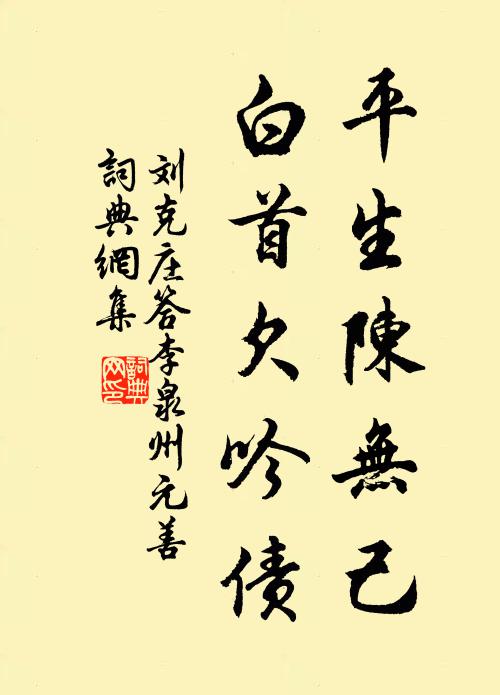 平生陳無己
白首欠吟债
刘克庄答李泉州元善
詞典網集
詞典網印